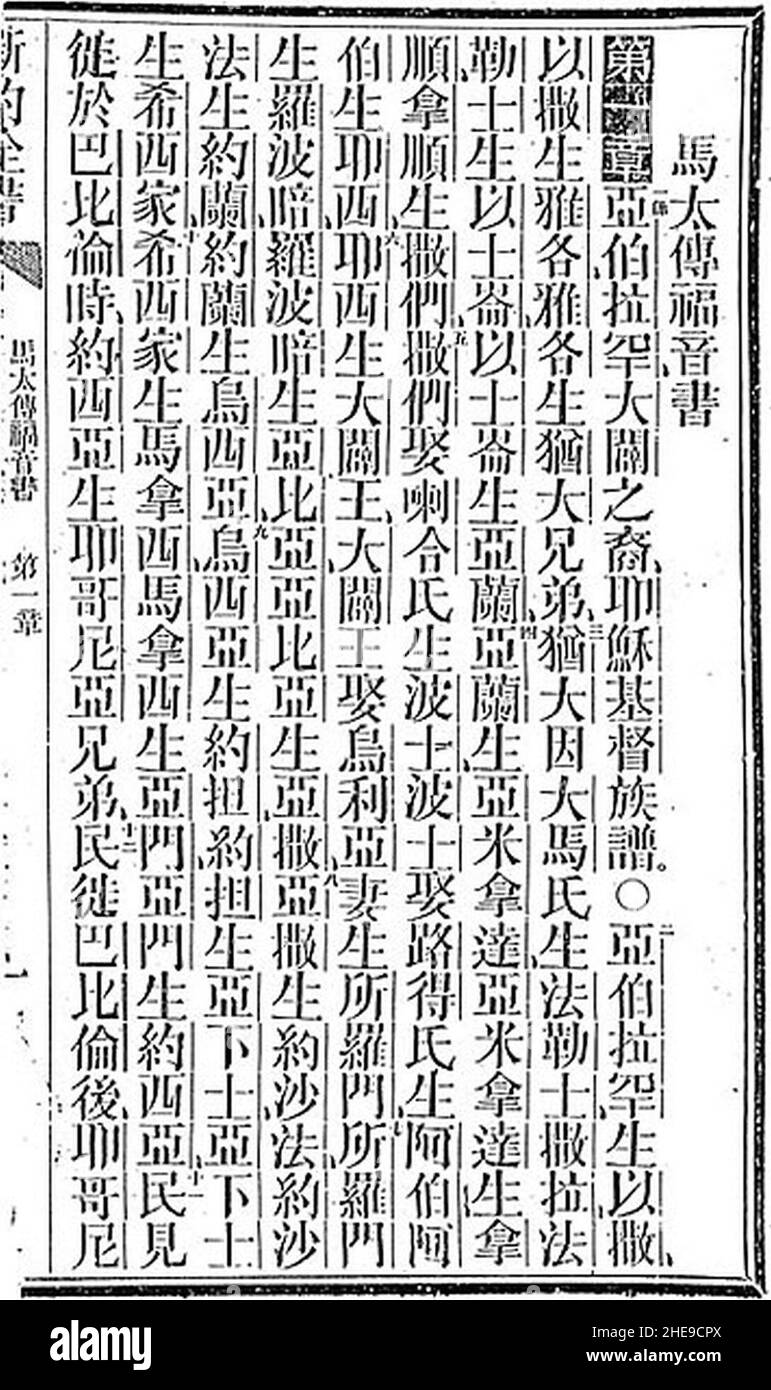 馬太傳福音書
第一章亞伯拉罕大闢之裔、耶穌基督族譜。〇二亞伯拉罕生以撒、
以撒生雅各、雅各生猶大兄弟、三猶大因大馬氏生法勒士撒拉、法
勒士生以士崙、以士崙生亞蘭、四亞蘭生亞米拿達、亞米拿達生拿
順、拿順生撒們、五撒們娶喇合氏生波士、波士娶路得氏生阿伯、阿
伯生耶西、六耶西生大闢王、大闢王娶烏利亞妻生所羅門、七所羅門
生羅波暗、羅波暗生亞比亞、亞比亞生亞撒、八亞撒生約沙法、約沙
法生約蘭、約蘭生烏西亞、九烏西亞生約担、約担生亞下士、亞下士
生希西家、十希西家生馬拿西、馬拿西生亞門、亞門生約西亞、十一民見
徙於巴比倫時、約西亞生耶哥尼亞兄弟、十二民徙巴比倫後、耶哥尼
新約全書
馬太傳福音書 第一章
一
alamy
Image ID: 2HE9CPX
www.alamy.com